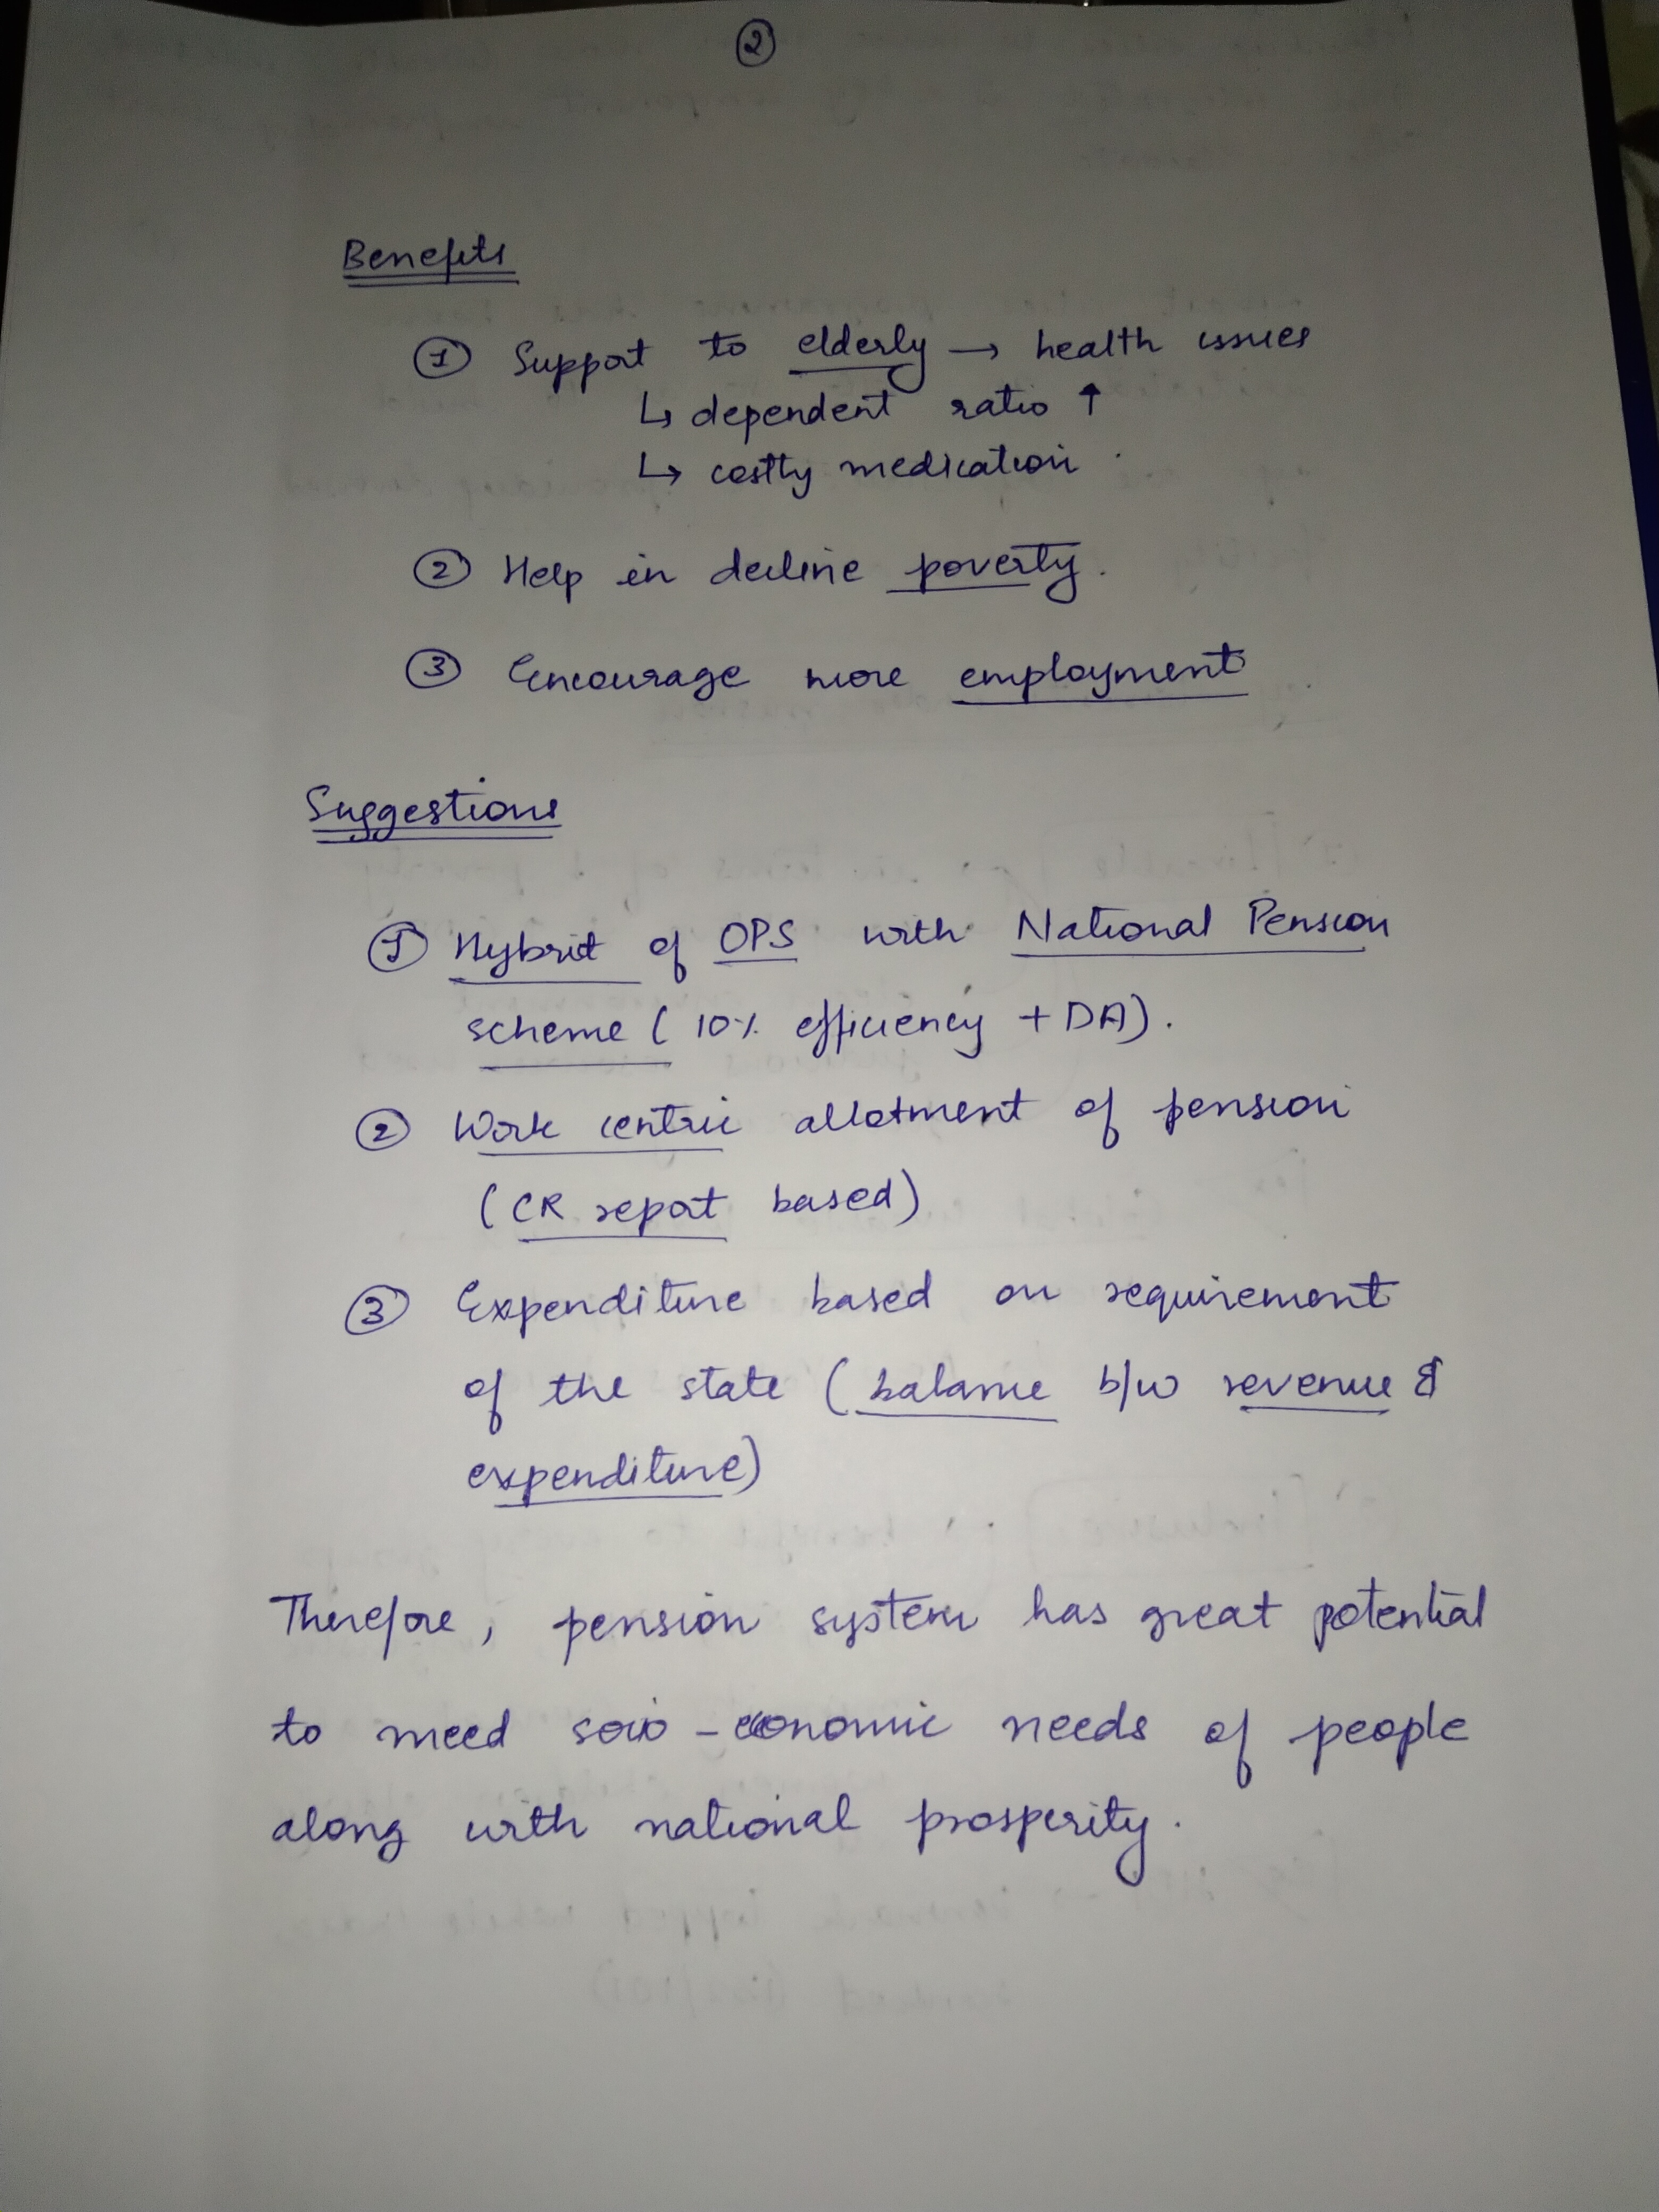 ②
Benefits
① Support to elderly → health issues
↳ dependent ratio ↑
↳ costly medication
② Help in decline poverty.
③ Encourage more employment
Suggestions
① Hybrid of OPS with National Pension
scheme ( 10% efficiency + DA).
② Work centric allotment of pension
( CR report based)
③ Expenditure based on requirement
of the state ( balance b/w revenue &
expenditure)
Therefore, pension system has great potential
to meed socio-economic needs of people
along with national prosperity.